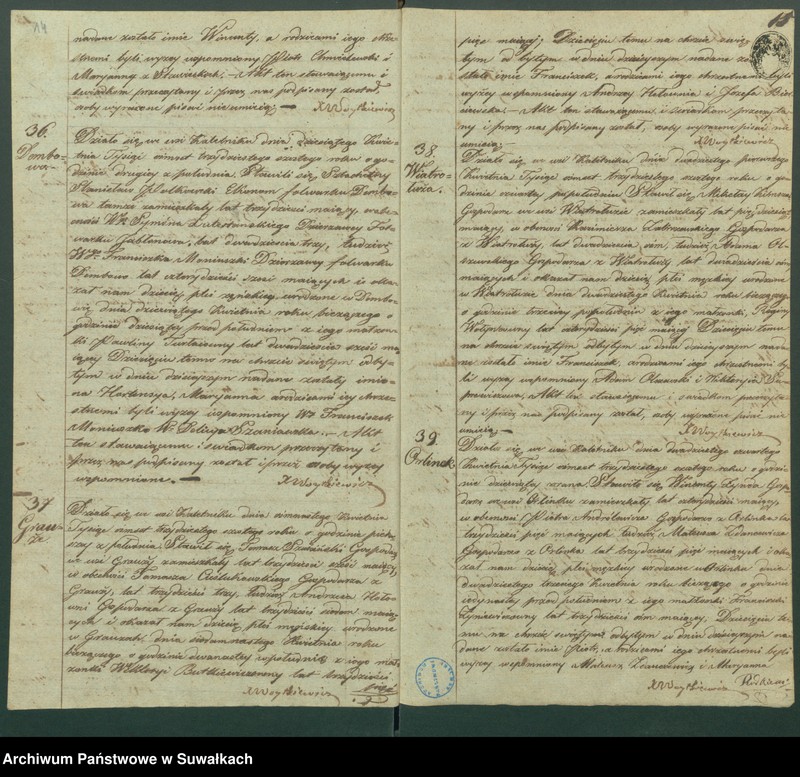 14
nadane zostało imie Wincenty, a rodzicami jego chrze=
stnemi byli wyzey wspomniony Piotr Chmielewski i
Maryanną z Akt ten stawaiącemu i
swiadkom przeczytany i przez nas podpisany został,
osoby wyrażone pisać nieumieią. —
X Woytkiewicz
36.
Dombo=
wo.
Działo się we wsi Kaletniku dnia dziesiątego Kwie=
tnia Tysiąc ośmset trzydziestego szóstego roku o go=
dzinie drugiey z południa. Stawili się Szlachetny
Stanisław Ekonom folwarku Dombo=
wa tamże zamieszkały lat trzydzieści maiący, w obe=
cności WP. Symona Dzierzawcy Fol=
warku Jabłonowa, lat dwadzieścia trzy, tudzież
WP. Franciszka Moniuszki Dzierzawcy folwarku
Dombowo lat czterdzieści sześć maiących i oka=
zał nam dziecię płci żeńskiey urodzone w Dombo=
wie dnia dziesiątego Kwietnia roku bieżącego o
godzinie dziesiątey przed południem z jego małżon=
ki Pauliny lat dwadzieścia sześć ma=
iącey Dziecięciu temu na chrzcie świętym odby=
tym w dniu dzisieyszym nadane zostały imio=
na Hortensya, Maryanna a rodzicami iey chrze=
stnemi byli wyzey wspomniony WP. Franciszek
Moniuszko W. Felicya Szaniawska. — Akt
ten stawaiącemu i swiadkom przeczytany i
przez nas podpisany został i przez osoby wyzey
wspomnione. —
X Woytkiewicz
37
Grau=
że.
Działo się we wsi Kaletniku dnia ośmnastego Kwietnia
Tysiąc ośmset trzydziestego szóstego roku o godzinie pierw=
szy z południa. Stawił się Tomasz Gospodarz
we wsi Grauży zamieszkały lat trzydzieści sześć maiący,
w obecności Tomasza Gospodarza z
Grauży, lat trzydzieści trzy, tudzież Andrzeia Hałou=
ni Gospodarza z Grauży lat trzydzieści siedem maią=
cych i okazał nam dziecię płci męskiey urodzone
w Grauzach, dnia siedemnastego Kwietnia roku
bieżącego o godzinie dwunastey w południe z iego mał=
żonki Wiktoryi Butkiewiczowny lat trzydzieści
X Woytkiewicz
15
pięć maiącey; Dziecięciu temu na chrzcie świę=
tym odbytym w dniu dzisieyszym nadane zo=
stało imie Franciszek, a rodzicami iego chrzestnemi byli
wyzey wspomniony Andrzey Hałounia i Józefa
Akt ten stawaiącemu i swiadkom przeczyta=
ny i przez nas podpisany został, osoby wyrażone pisać nie
umieią
X Woytkiewicz
38.
Wiatro=
łuża.
Działo się we wsi Kaletniku dnia dwudziestego pierwszego
Kwietnia Tysiąc ośmset trzydziestego szóstego roku o go=
dzinie czwartey popołudniu. Stawił się Mikołay
Gospodarz we wsi Wiatrołuże zamieszkały lat pięćdziesiąt
maiący, w obecności Kazimierza Gospodarza
z Wiatrołuży, lat dwadzieścia ośm, tudzież Adama Ol=
szewskiego Gospodarza z Wiatrołuży lat dwadzieścia ośm
maiących i okazał nam dziecię płci męskiey urodzone
w Wiatrołuże dnia dwudziestego Kwietnia roku bieżącego
o godzinie trzeciey popołudniu z iego małżonki, Reginy
lat czterdzieści pięć maiącey Dziecięciu temu
na chrzcie świętym odbytym w dniu dzisieyszym nada=
ne zostało imie Franciszek, a rodzicami iego chrzestnemi by=
li wyzey wspomniony Adam i Wiktorya
Akt ten stawaiącemu i swiadkom przeczyta=
ny i przez nas podpisany został, osoby wyrażone pisać nie
umieią —
X Woytkiewicz
39.
Orlinek
Działo się we wsi Kaletniku dnia dwudziestego czwartego
Kwietnia Tysiąc ośmset trzydziestego szóstego roku o godzi=
nie dziewiątey zrana. Stawił się Wincenty Gospo=
darz ze wsi Orlinka zamieszkały lat czterdzieści maiący,
w obecności Piotra Gospodarza z Orlinka lat
trzydzieści pięć maiących tudzież Mateusza Zdancewicza
Gospodarza z Orlinka lat trzydzieści pięć maiących i oka=
zał nam dziecię płci męskiey urodzone w Orlinku dnia
dwudziestego trzeciego Kwietnia roku bieżącego o godzinie
iedynastey przed południem z iego małżonki Franciszki
lat trzydzieści ośm maiącey. Dziecięciu te=
mu na chrzcie świętym odbytym w dniu dzisieyszym na=
dane zostało imie Piotr, a rodzicami iego chrzestnemi byli
wyzey wspomniony Mateusz Zdancewicz i Maryanna
X Woytkiewicz
Archiwum Państwowe w Suwałkach